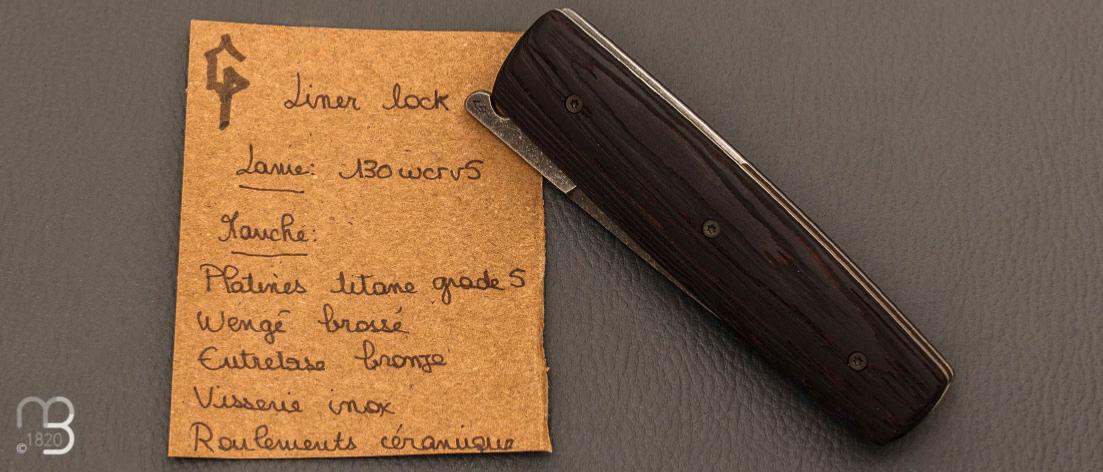 GP
Liner lock
Lame: 130wcrv5
Manche:
Platines titane grade 5
Wengé brossé
Entretoise bronze
Visserie inox
Roulements céramique
MB
© 1820